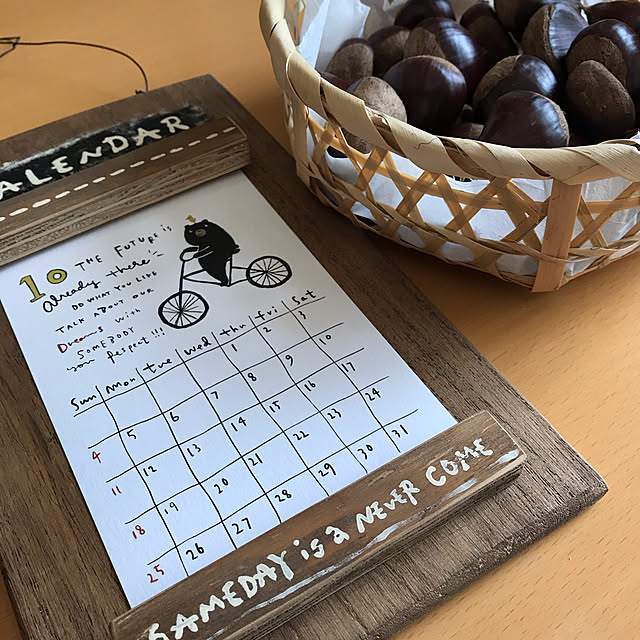 ALENDAR
10 THE FUTURE is
already there =
DO WHAT YOU LIKE
TALK ABOUT OUR
Dreams with
SOMEBODY
you respect!!!
Sun mon tue wed thu fri Sat
1 2 3
4 5 6 7 8 9 10
11 12 13 14 15 16 17
18 19 20 21 22 23 24
25 26 27 28 29 30 31
SAMEDAY is a NEVER COME